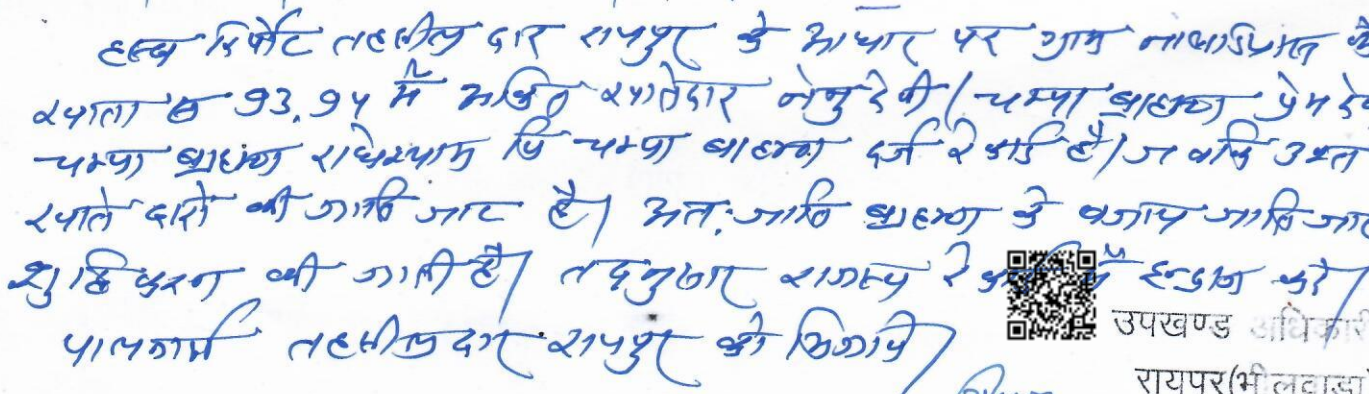 हल्का रिपोर्ट तहसीलदार रायपुर के आधार पर ग्राम के
खाता 93,94 में अंकित खातेदार देवी चम्पा ब्राहमण प्रेम
चम्पा ब्राहमण राधेश्याम पि चम्पा ब्राहमण दर्ज रेकार्ड है। जबकि उक्त
खाते दारो की जाति जाट है। अत: जाति ब्राहमण के बजाय जाति जाट
शुद्धिकरण की जाती है। तदनुसार राजस्व में इन्द्राज करे।
पालनार्थ तहसीलदार रायपुर को
उपखण्ड अधिकारी
रायपुर(भीलवाड़ा)